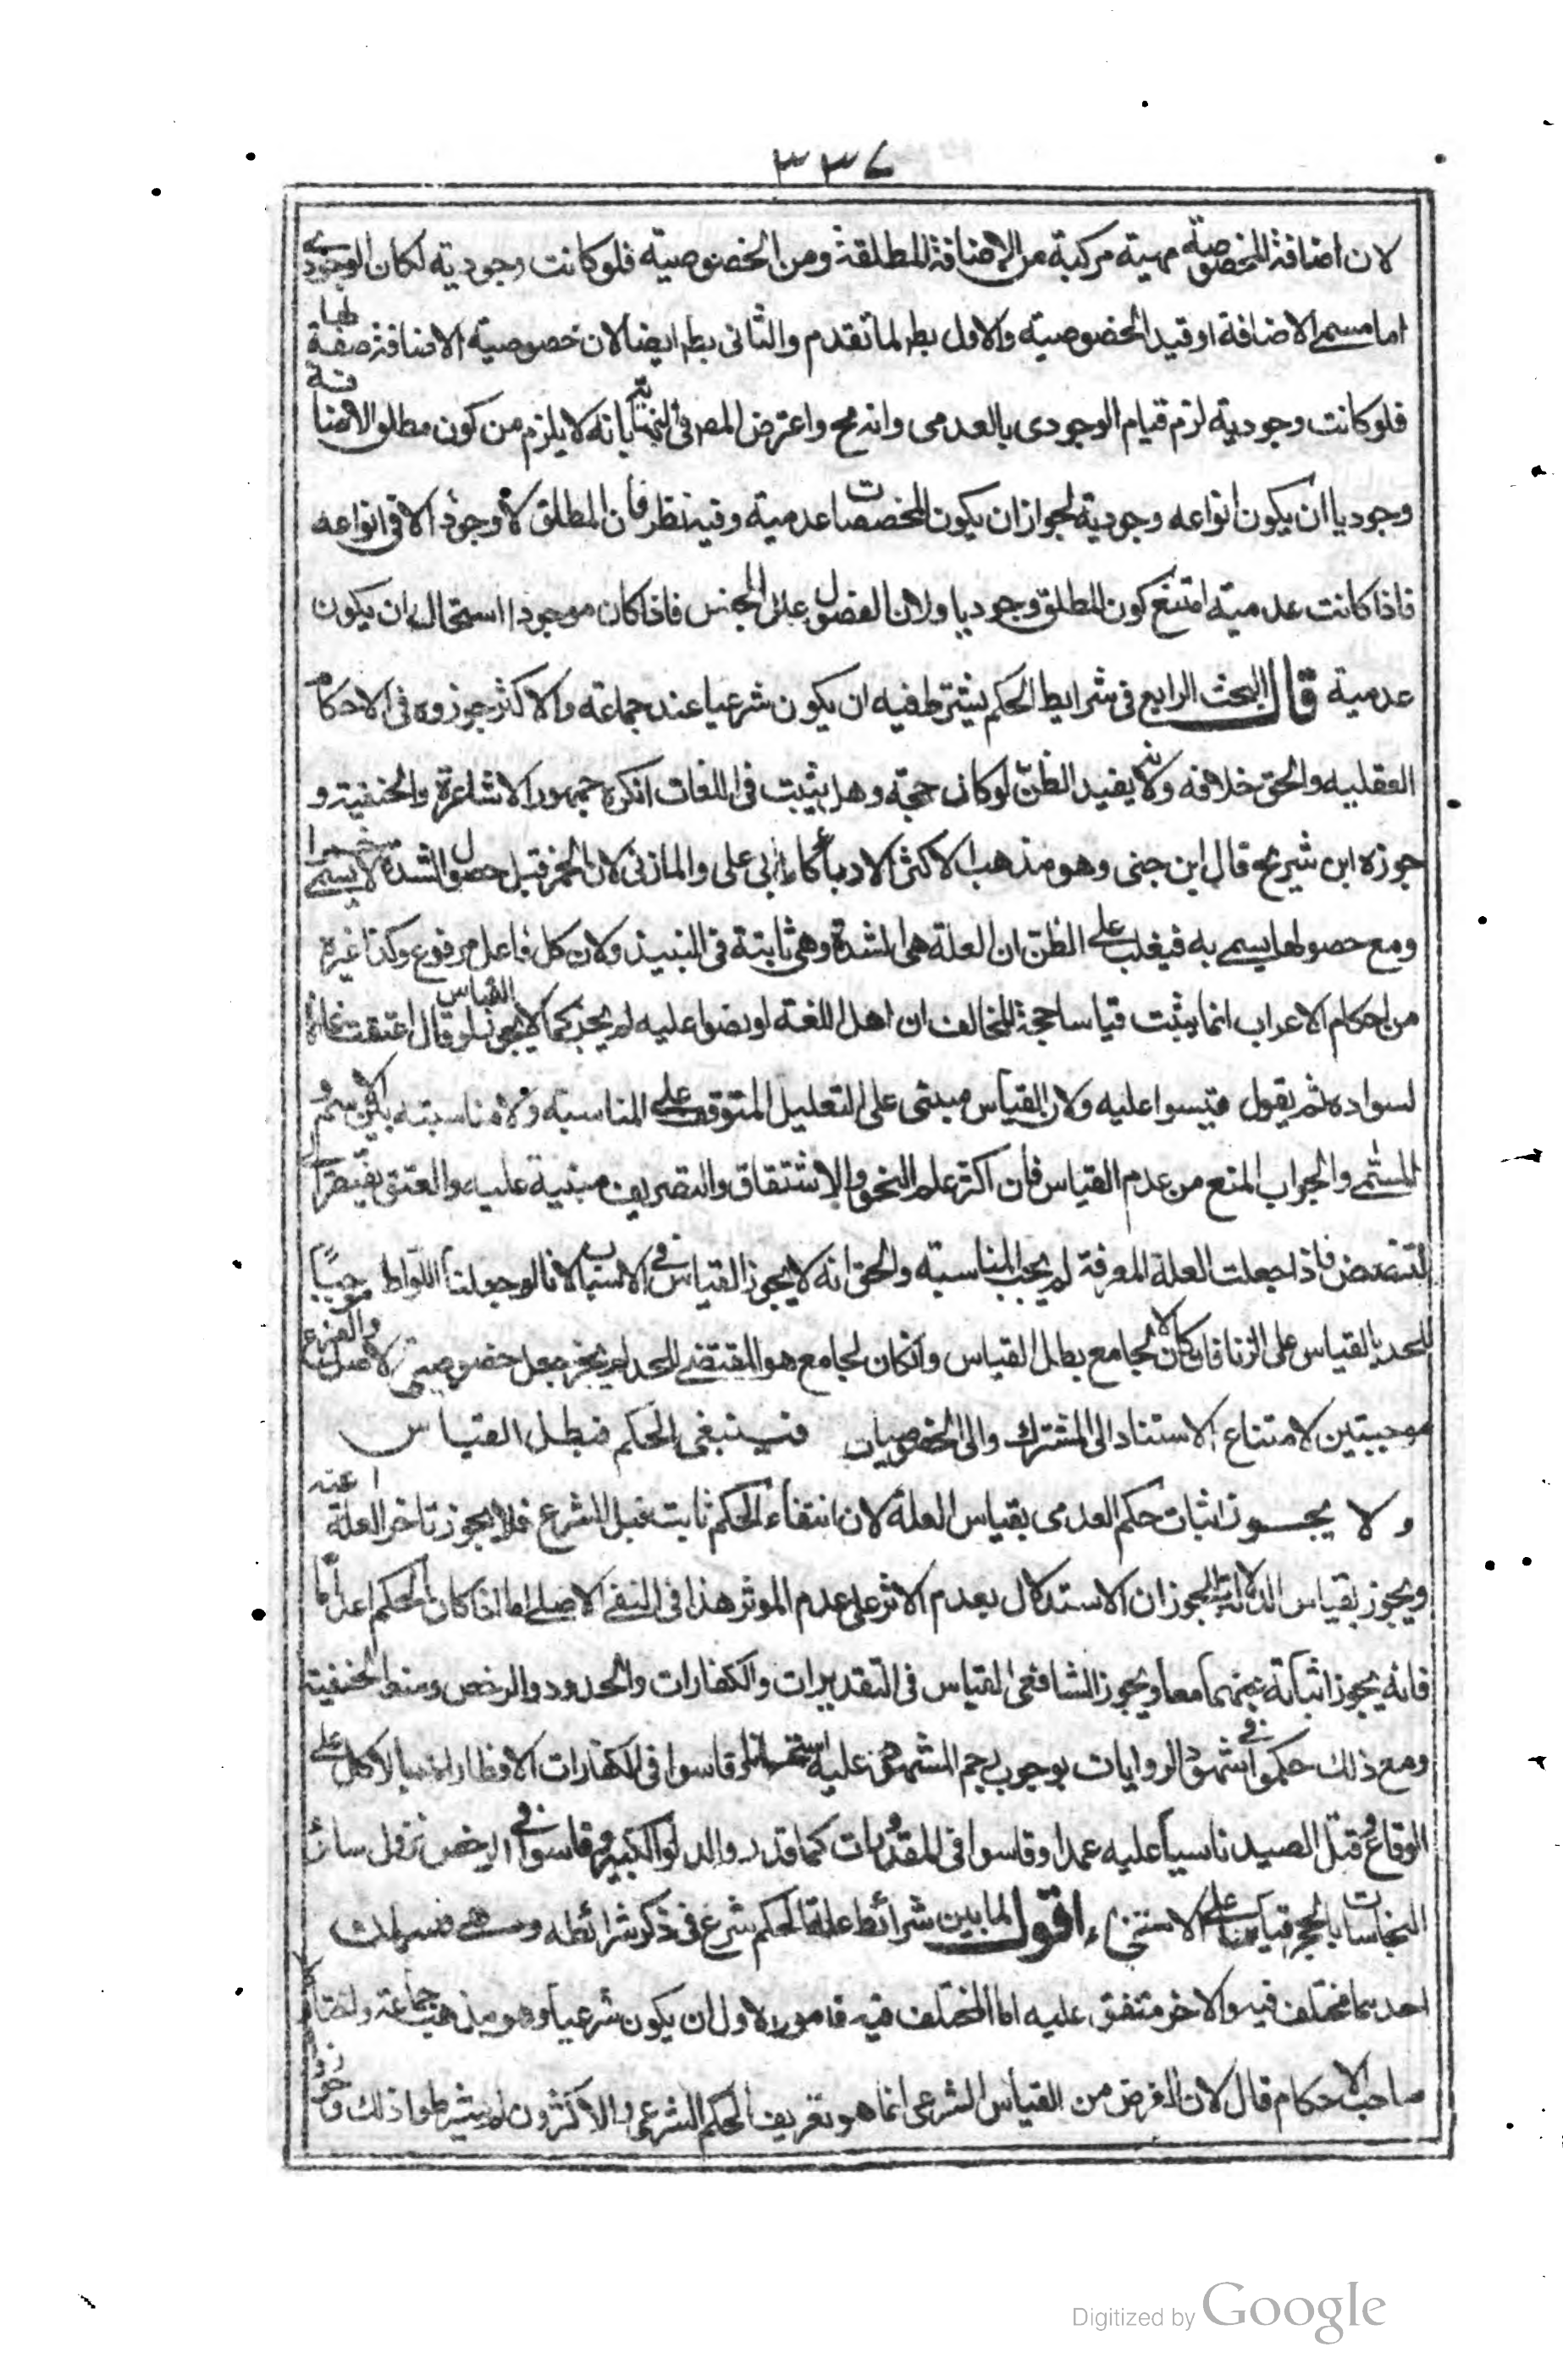 ٣٣٤
لان اضافة المخصوصة مهية مركبة من الاضافة المطلقة ومن الخصوصية فلو كانت وجودية لكان الوجودى
اما مسمى الاضافة او قيد الخصوصية والاول بط لما تقدم والثانى بط ايضا لان خصوصية الاضافة صفة لها
فلو كانت وجودية لزم قيام الوجودى بالعدمى وانه مح واعترض المص فى النهاية بانه لا يلزم من كون مطلق الاضافة
وجوديا ان يكون انواعه وجودية لجواز ان يكون المخصصات عدمية وفيه نظر فان المطلق لا وجود الا فى انواعه
فاذا كانت عدمية امتنع كون المطلق وجوديا ولان الفصول علل الجنس فاذا كان موجودا استحال ان يكون
عدمية قال البحث الرابع فى شرايط الحكم يشترط فيه ان يكون شرعيا عند جماعة والاكثر جوزوه فى الاحكام
العقليه والحق خلافه ولانه يفيد الظن لو كان حجة وهل يثبت فى اللغات انكره جمهور الاشاعرة والحنفية و
جوزه ابن شريح قال ابن جنى وهو مذهب الاكثر الادباء كابى على والمازنى لان الخمر قبل حصول الشدة لا يسمى خمرا
ومع حصولها يسمى به فيغلب على الظن ان العلة هى الشدة وهى ثابتة فى النبيذ ولان كل فاعل مرفوع وكذا غيره
من احكام الاعراب انما يثبت قياسا حجة المخالف ان اهل اللغة لو نصوا عليه لم يجز كما لا يجوز القياس لو قال اعتقت غانما
لسواده ثم يقول قيسوا عليه ولان القياس مبنى على التعليل المتوقف على المناسبة ولا مناسبة بين الاسم و
المسمى والجواب المنع من عدم القياس فان اكثر علم النحو والاشتقاق والتصريف مبنية عليه والعتق يفتقر الى
لتنصيص فاذا جعلت العلة المعرفة لم يجب المناسبة والحق انه لا يجوز القياس فى الاسباب لانا لو جعلنا اللواط موجبا
للحد بالقياس على الزنا فان كان لا لجامع بطل القياس وانكان لجامع هو المقتضى للحد لم يجز جعل خصوصيتى الاصل والفرع
موجبتين لامتناع الاستناد الى المشترك والى الخصوصيات فينبغى الحكم فبطل القياس
ولا يجوز اثبات حكم العدمى بقياس العلة لان انتفاء الحكم ثابت قبل الشرع فلا يجوز تاخر العلة عنه
ويجوز بقياس الدلالة لجواز ان الاستدلال بعدم الاثر على عدم الموثر هذا فى النفى الاصلى اما اذا كان الحكم اعداما
فانه يجوز اثباته عنهما معا ويجوز الشافعى القياس فى التقديرات والكفارات والحدود والرخص ومنع الحنفية
ومع ذلك حكموا فى شهود الروايات بوجوب رجم المشهود عليه استحسانا وقاسوا فى الكفارات الافطار بالاكل على
الوقاع وقتل الصيد ناسيا عليه عمدا وقاسوا فى المقدرات كما قدروا الدلو الكبيرة وقاسوا فى الرخص سائر
النجاسات بالحجر قياسا على الاستنجاء اقول لما بين شرائط علة الحكم شرع فى ذكر شرائطه وهى قسمان
احدهما مختلف فيه والاخر متفق عليه اما المختلف فيه فامور الاول ان يكون شرعيا وهو مذهب جماعة واختاره
صاحب الاحكام قال لان الغرض من القياس الشرعى انما هو تعريف الحكم الشرعى والاكثرون لم يشترطوا ذلك وجوزوا
Digitized by Google